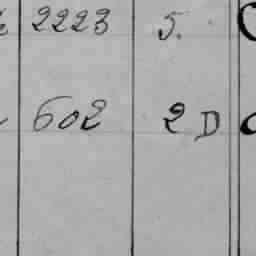 2223 5.
602 2 D